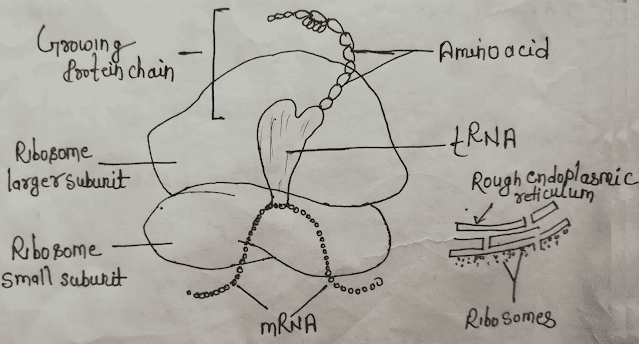 Growing
Protein chain
Amino acid
tRNA
Ribosome
larger subunit
Rough endoplasmic
reticulum
Ribosome
small subunit
mRNA
Ribosomes